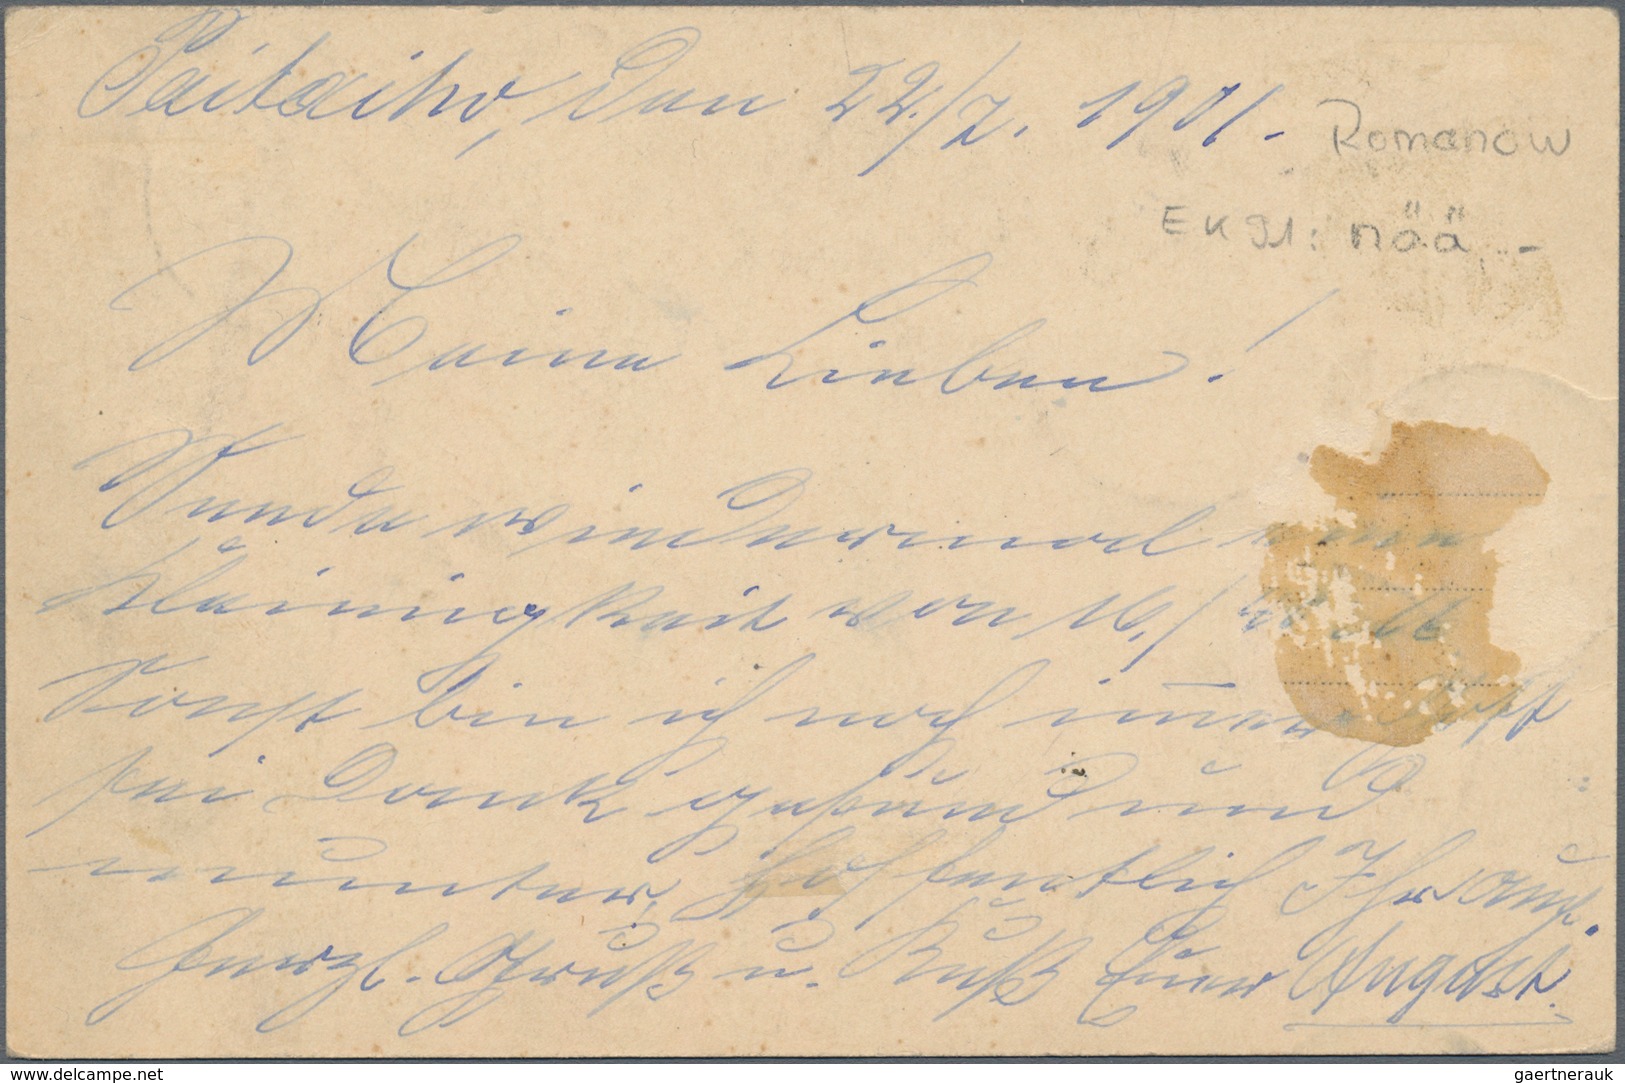 Peitaiho, den 22./7. 1901.
Romanow
EK 91: nää.-
Meine Lieben!
Sende wiedermal eine
Kleinigkeit von 16./
Sonst bin ich noch immer Gott
sei Dank gesund und
munter, hoffentlich Ihr auch.
Herzl. Gruß u. Kuß Euer August.
www.delcampe.net
gaertnerauk